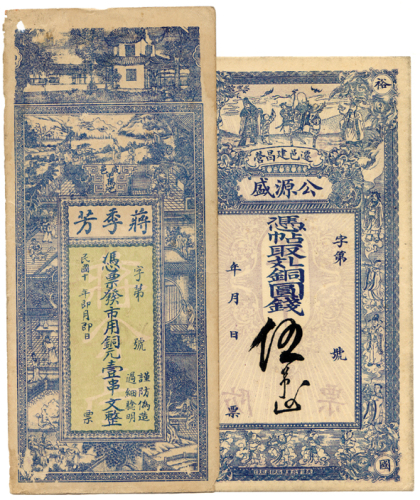 蔣季芳
憑票發市用銅元壹串文整
字第 號
民國十 年 月 日
謹防偽造
過細聰明
票
裕
遼邑建昌營
公源盛
憑帖取扎銅圓錢
字第 號
年 月 日
伍
票
國